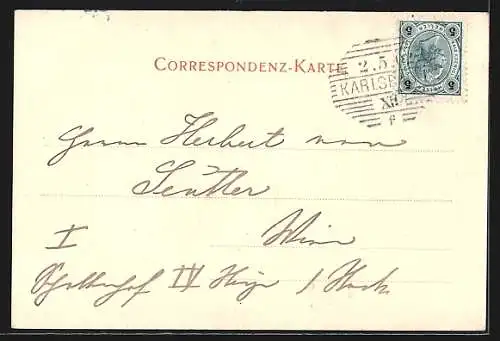 CORRESPONDENZ-KARTE
2.5.
KARLS
XI
f
5 5
5 5
Herrn Herbert von
Seutter
Wien
I
Schottenhof IV Stiege 1 Stock